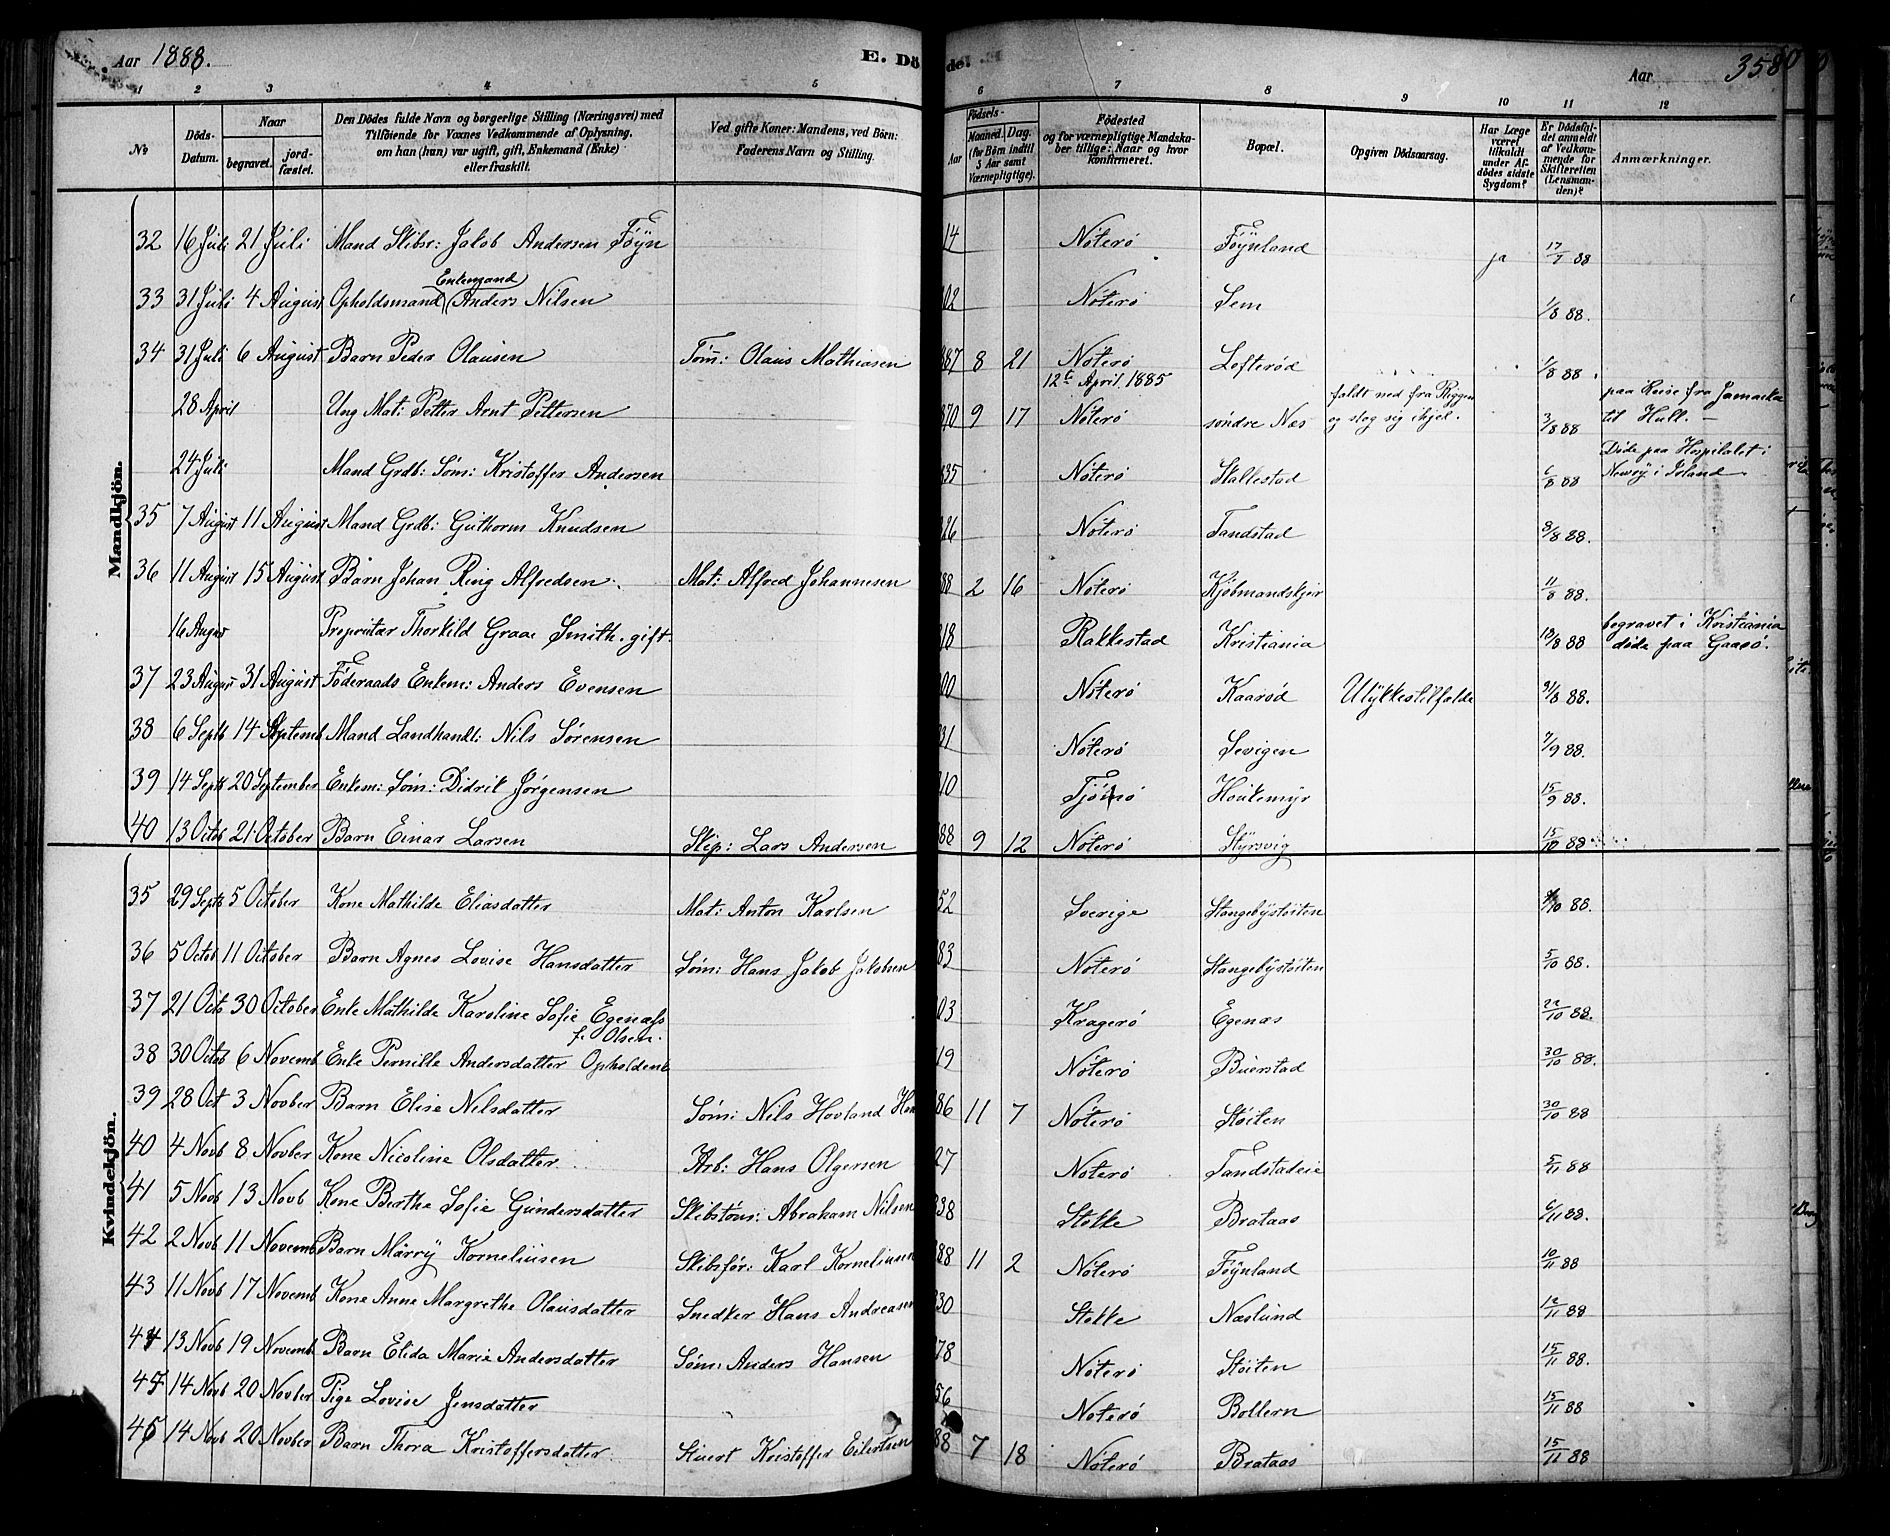 Aar 1888.
E. Dö
del.
Aar
358
1 2 3 4 5 6 7 8 9 10 11 12
No
Döds-Datum.
Naar
begravet.
jord-fæstet.
Den Dödes fulde Navn og borgerlige Stilling (Næringsvei) med
Tilföiende for Voxnes Vedkommende af Oplysning,
om han (hun) var ugift, gift, Enkemand (Enke)
eller fraskilt.
Ved gifte Koner: Mandens, ved Börn:
Faderens Navn og Stilling.
Födsels-
Aar
Maaned.
Dag.
(for Börn indtil
5 Aar samt
Værnepligtige).
Födested
og for værnepligtige Mandska-
ber tillige: Naar og hvor
konfirmeret.
Bopæl.
Opgiven Dödsaarsag.
Har Læge
været
tilkaldt
under Af-
dödes sidste
Sygdom?
Er Dödsfal-
det anmeldt
af Vedkom-
mende for
Skifteretten
(Lensman-
den)?
Anmærkninger.
Mandkjön.
32 16 Juli 21 Juli Mand Skibsr: Jakob Andersen Föyn 14 Nöterö Föynland ja 17/7 88
Enkemand
33 31 Juli 4 August Opholdsmand Anders Nilsen 02 Nöterö Sem 1/8 88.
34 31 Juli 6 August Barn Peder Olausen Töm: Olaus Mathiasen 87 8 21 Nöterö Lofteröd 1/8 88.
12te April 1885
28 April Ung Mat: Petter Arnt Pettersen 70 9 17 Nöterö söndre Næs faldt ned fra Riggen og slog sig ihjel. 3/8 88 paa Reise fra Jamaika til Hull.
24 Juli Mand Grdb: Söm: Kristoffer Andersen 35 Nöterö Skallestad 6/8 88 Döde paa Hospitalet i Newry i Irland
35 7 August 11 August Mand Grdb: Guthorm Knudsen 26 Nöterö Tandstad 8/8 88.
36 11 August 15 August Barn Johan Ring Alfredsen Mat: Alfred Johannesen 88 2 16 Nöterö Kjöbmandskjær 11/8 88.
16 Augus Proprietær Thorkild Graae Smith. gift. 18 Rakkestad Kristiania 18/8 88 begravet i Kristiania döde paa Gaasö.
37 23 August 31 August Föderaads Enkem: Anders Evensen 00 Nöterö Kaaröd Ulykkestilfælde 31/8 88.
38 6 Septb 14 Septemb Mand Landhandl: Nils Sörensen 31 Nöterö Sevigen 7/9 88.
39 14 Septb 20 September Enkem: Söm: Didrik Jörgensen 10 Tjömö Houkemyr 15/9 88.
40 13 Octob 21 October Barn Einar Larsen Skip: Lars Andersen 88 9 12 Nöterö Styrsvig 15/10 88
Kvindekjön.
35 29 Septb 5 October Kone Mathilde Eliasdatter Mat: Anton Karlsen 52 Sverige Stangebystöiten /10 88.
36 5 Octob 11 October Barn Agnes Lovise Hansdatter Söm: Hans Jakob Jakobsen 83 Nöterö Stangebystöiten 5/10 88.
37 21 Octo 30 October Enke Mathilde Karoline Sofie Egenæss 03 Kragerö Egenæs 22/10 88.
f. Olsen.
38 30 Octob 6 Novemb Enke Pernille Andersdatter Opholdenk 19 Nöterö Buerstad 30/10 88.
39 28 Oct 3 Novber Barn Elise Nilsdatter Söm: Nils Hovland Han 86 11 7 Nöterö Stöiten 30/10 88
40 4 Novb 8 Novber Kone Nicoline Olsdatter Arb: Hans Olgersen 27 Nöterö Tandstadeie 5/11 88
41 5 Novb 13 Novb Kone Berthe Sofie Gundersdatter Skibstöm: Abraham Nilsen 38 Stokke Brataas 6/11 88.
42 2 Novb 11 Novemb Barn Märry Korneliusen Skibsför: Karl Korneliusen 88 11 2 Nöterö Föynland 10/11 88
43 11 Novb 17 Novemb Kone Anne Margrethe Olausdatter Snedker Hans Andreasen 30 Stokke Næslund 12/11 88
44 13 Novb 19 Novemb Barn Elida Marie Andersdatter Söm: Anders Hansen 78 Nöterö Stöiten 15/11 88.
45 14 Novb 20 Novber Pige Lovise Jensdatter 56 Nöterö Bollern 15/11 88
46 14 Novb 20 Novber Barn Thora Kristoffersdatter Stuert Kristoffer Eilertsen 88 7 18 Nöterö Brataas 15/11 88